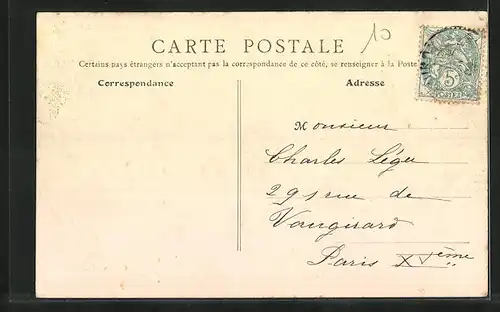 10
CARTE POSTALE
Certains pays étrangers n'acceptant pas la correspondance de ce côté, se renseigner à la Poste
Correspondance
Adresse
5
Monsieur
Charles Léger
291 rue de
Vaugirard
Paris XVème